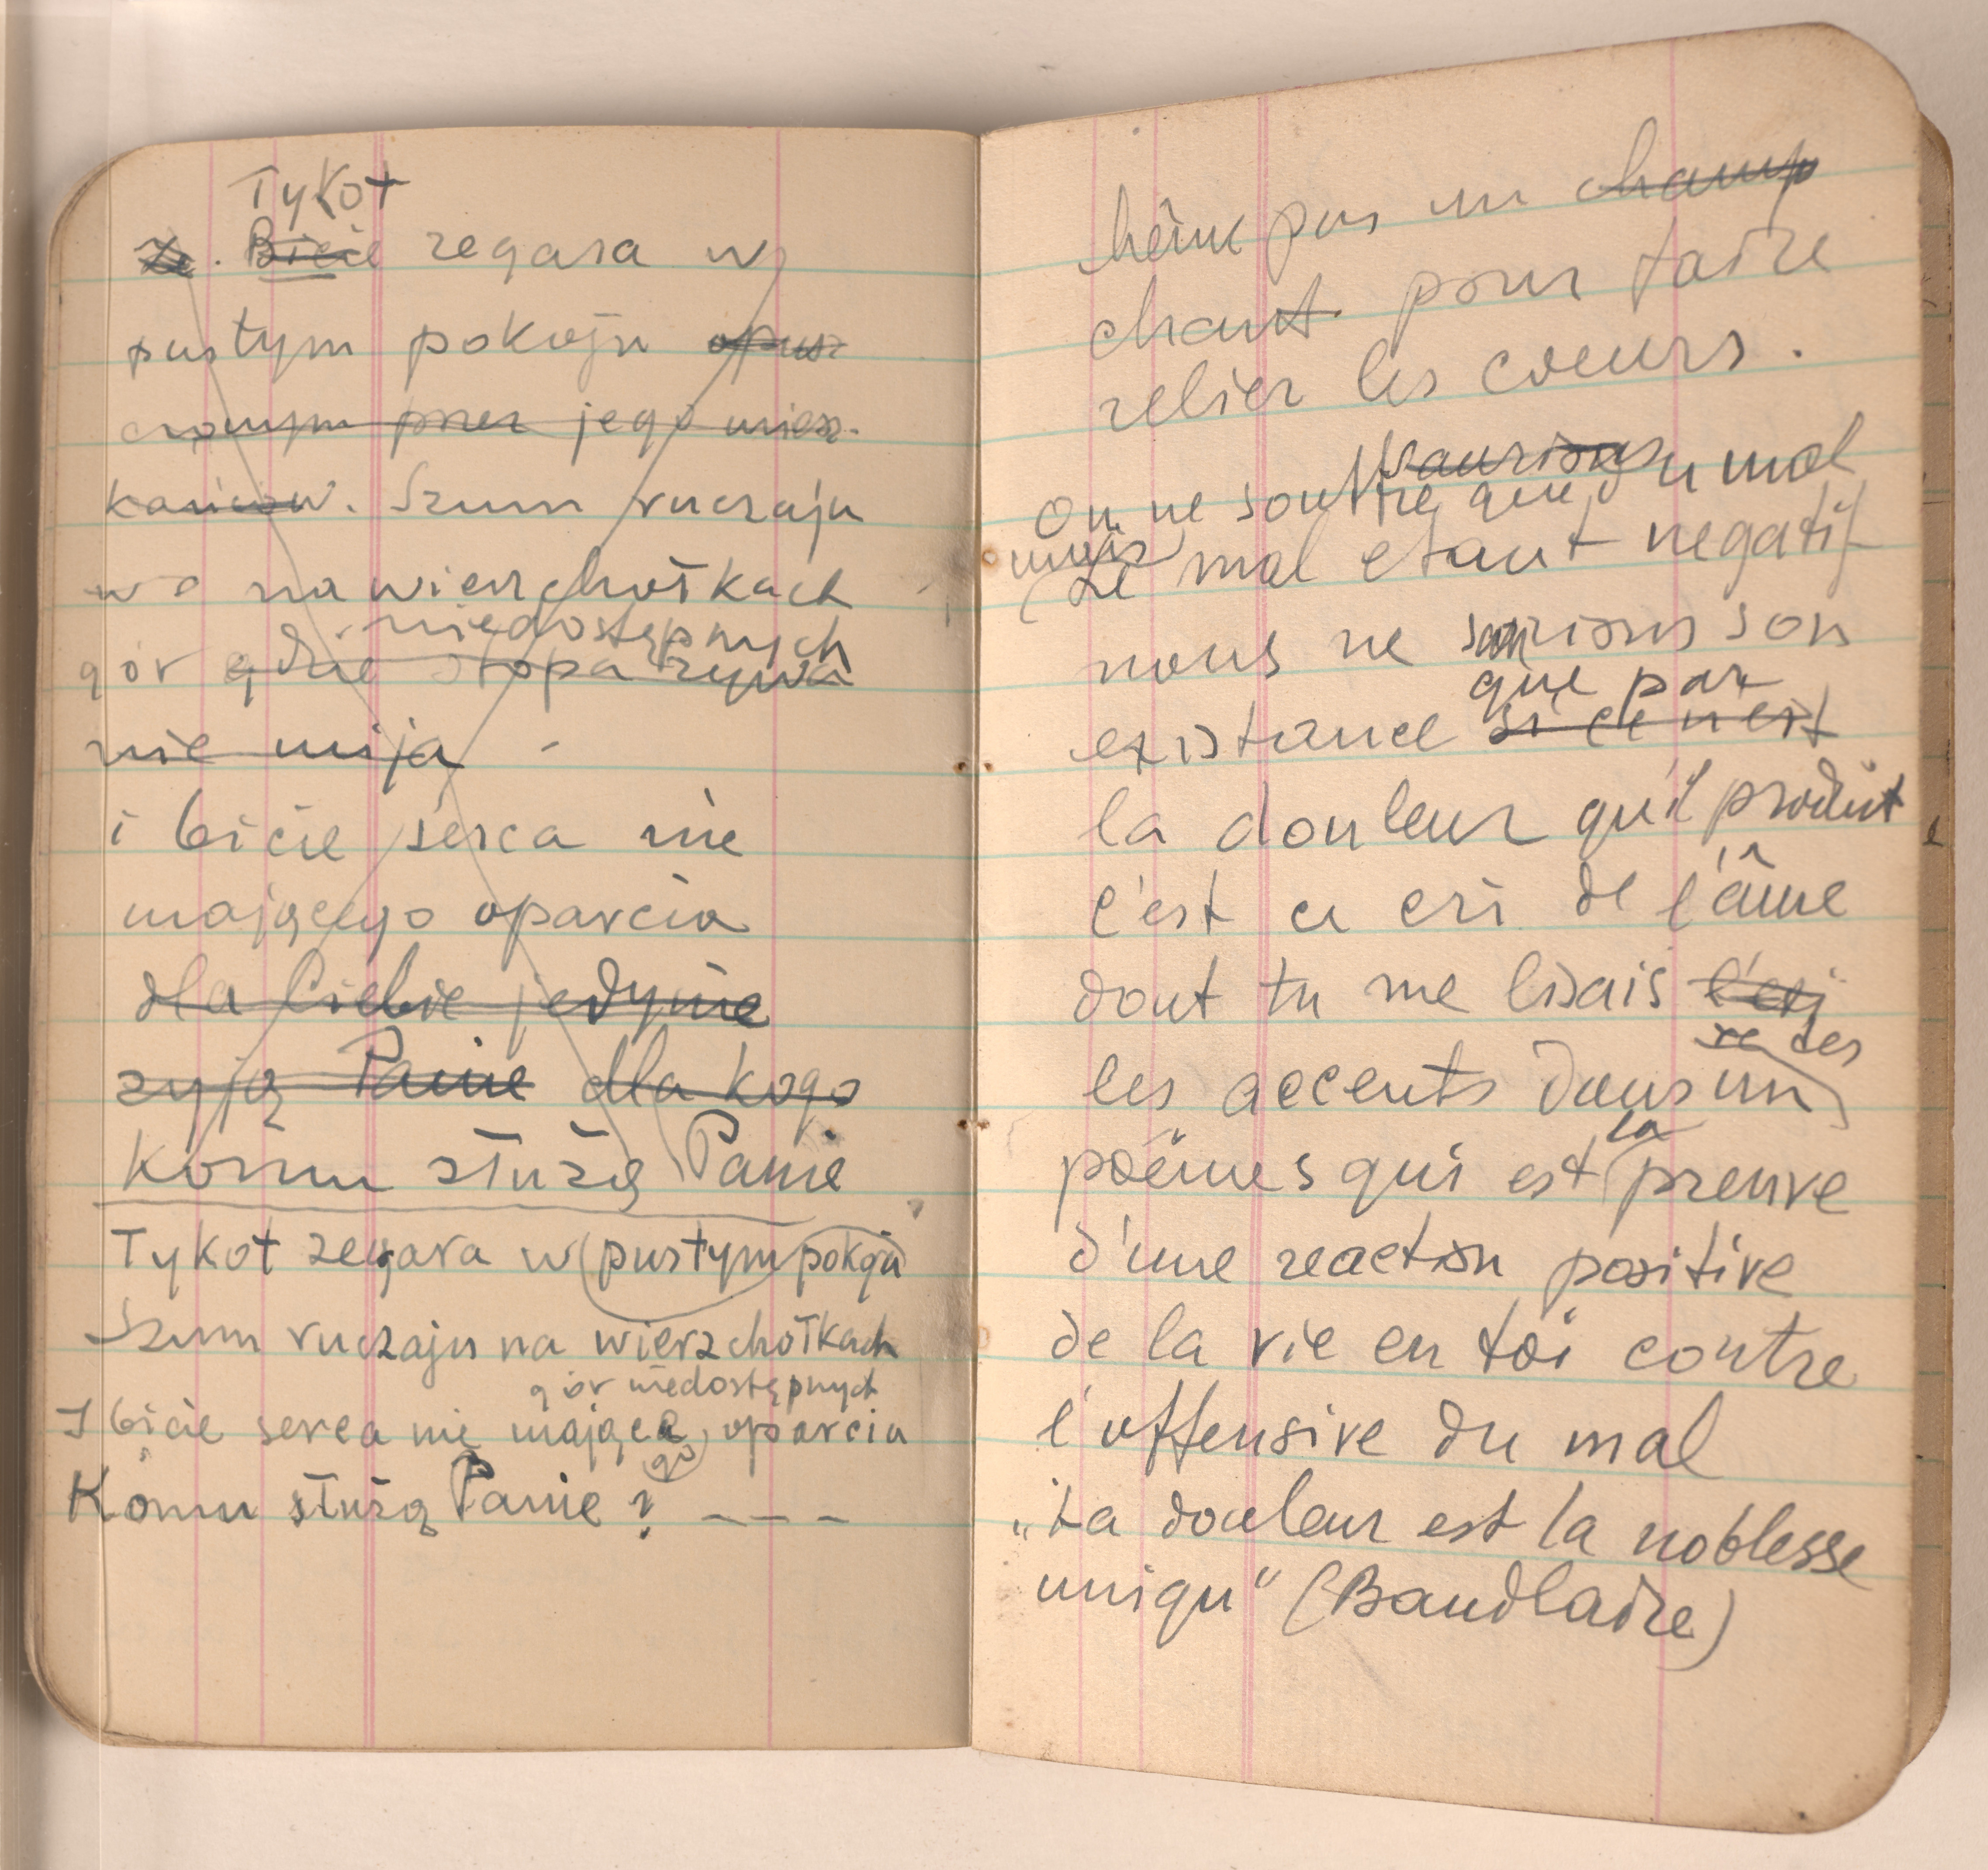 Tykot
Ze. Bicie zegara w
pustym pokoju opusz
czonym przez jego miesz-
kańców. Szum ruczaju
we na wierzchołkach
niedostępnych
gór gdzie stopa żywa
nie mija -
i bicie serca nie
mającego oparcia
dla Ciebie jedynie
żyją Panie dla kogo
Komu służą Panie
Tykot zegara w pustym pokoju
Szum ruczaju na wierzchołkach
gór niedostępnych
I bicie serca nie mające oparcia
go
Komu służą Panie ? - - -
pas un champ
chant pour faire
relier les coeurs.
saurions
On ne souffre que du mal
mais
Le mal etant negatif
nous ne saurions son
que par
existance si ce n'est
la douleur qu'il produit
c'est ce cri de l'âme
dont tu me lisais
ces
les accents dans un
la
poëmes qui est preuve
d'une reaction positive
de la vie en toi contre
l'offensive du mal
„La douleur est la noblesse
uniqu" (Baudlaire)